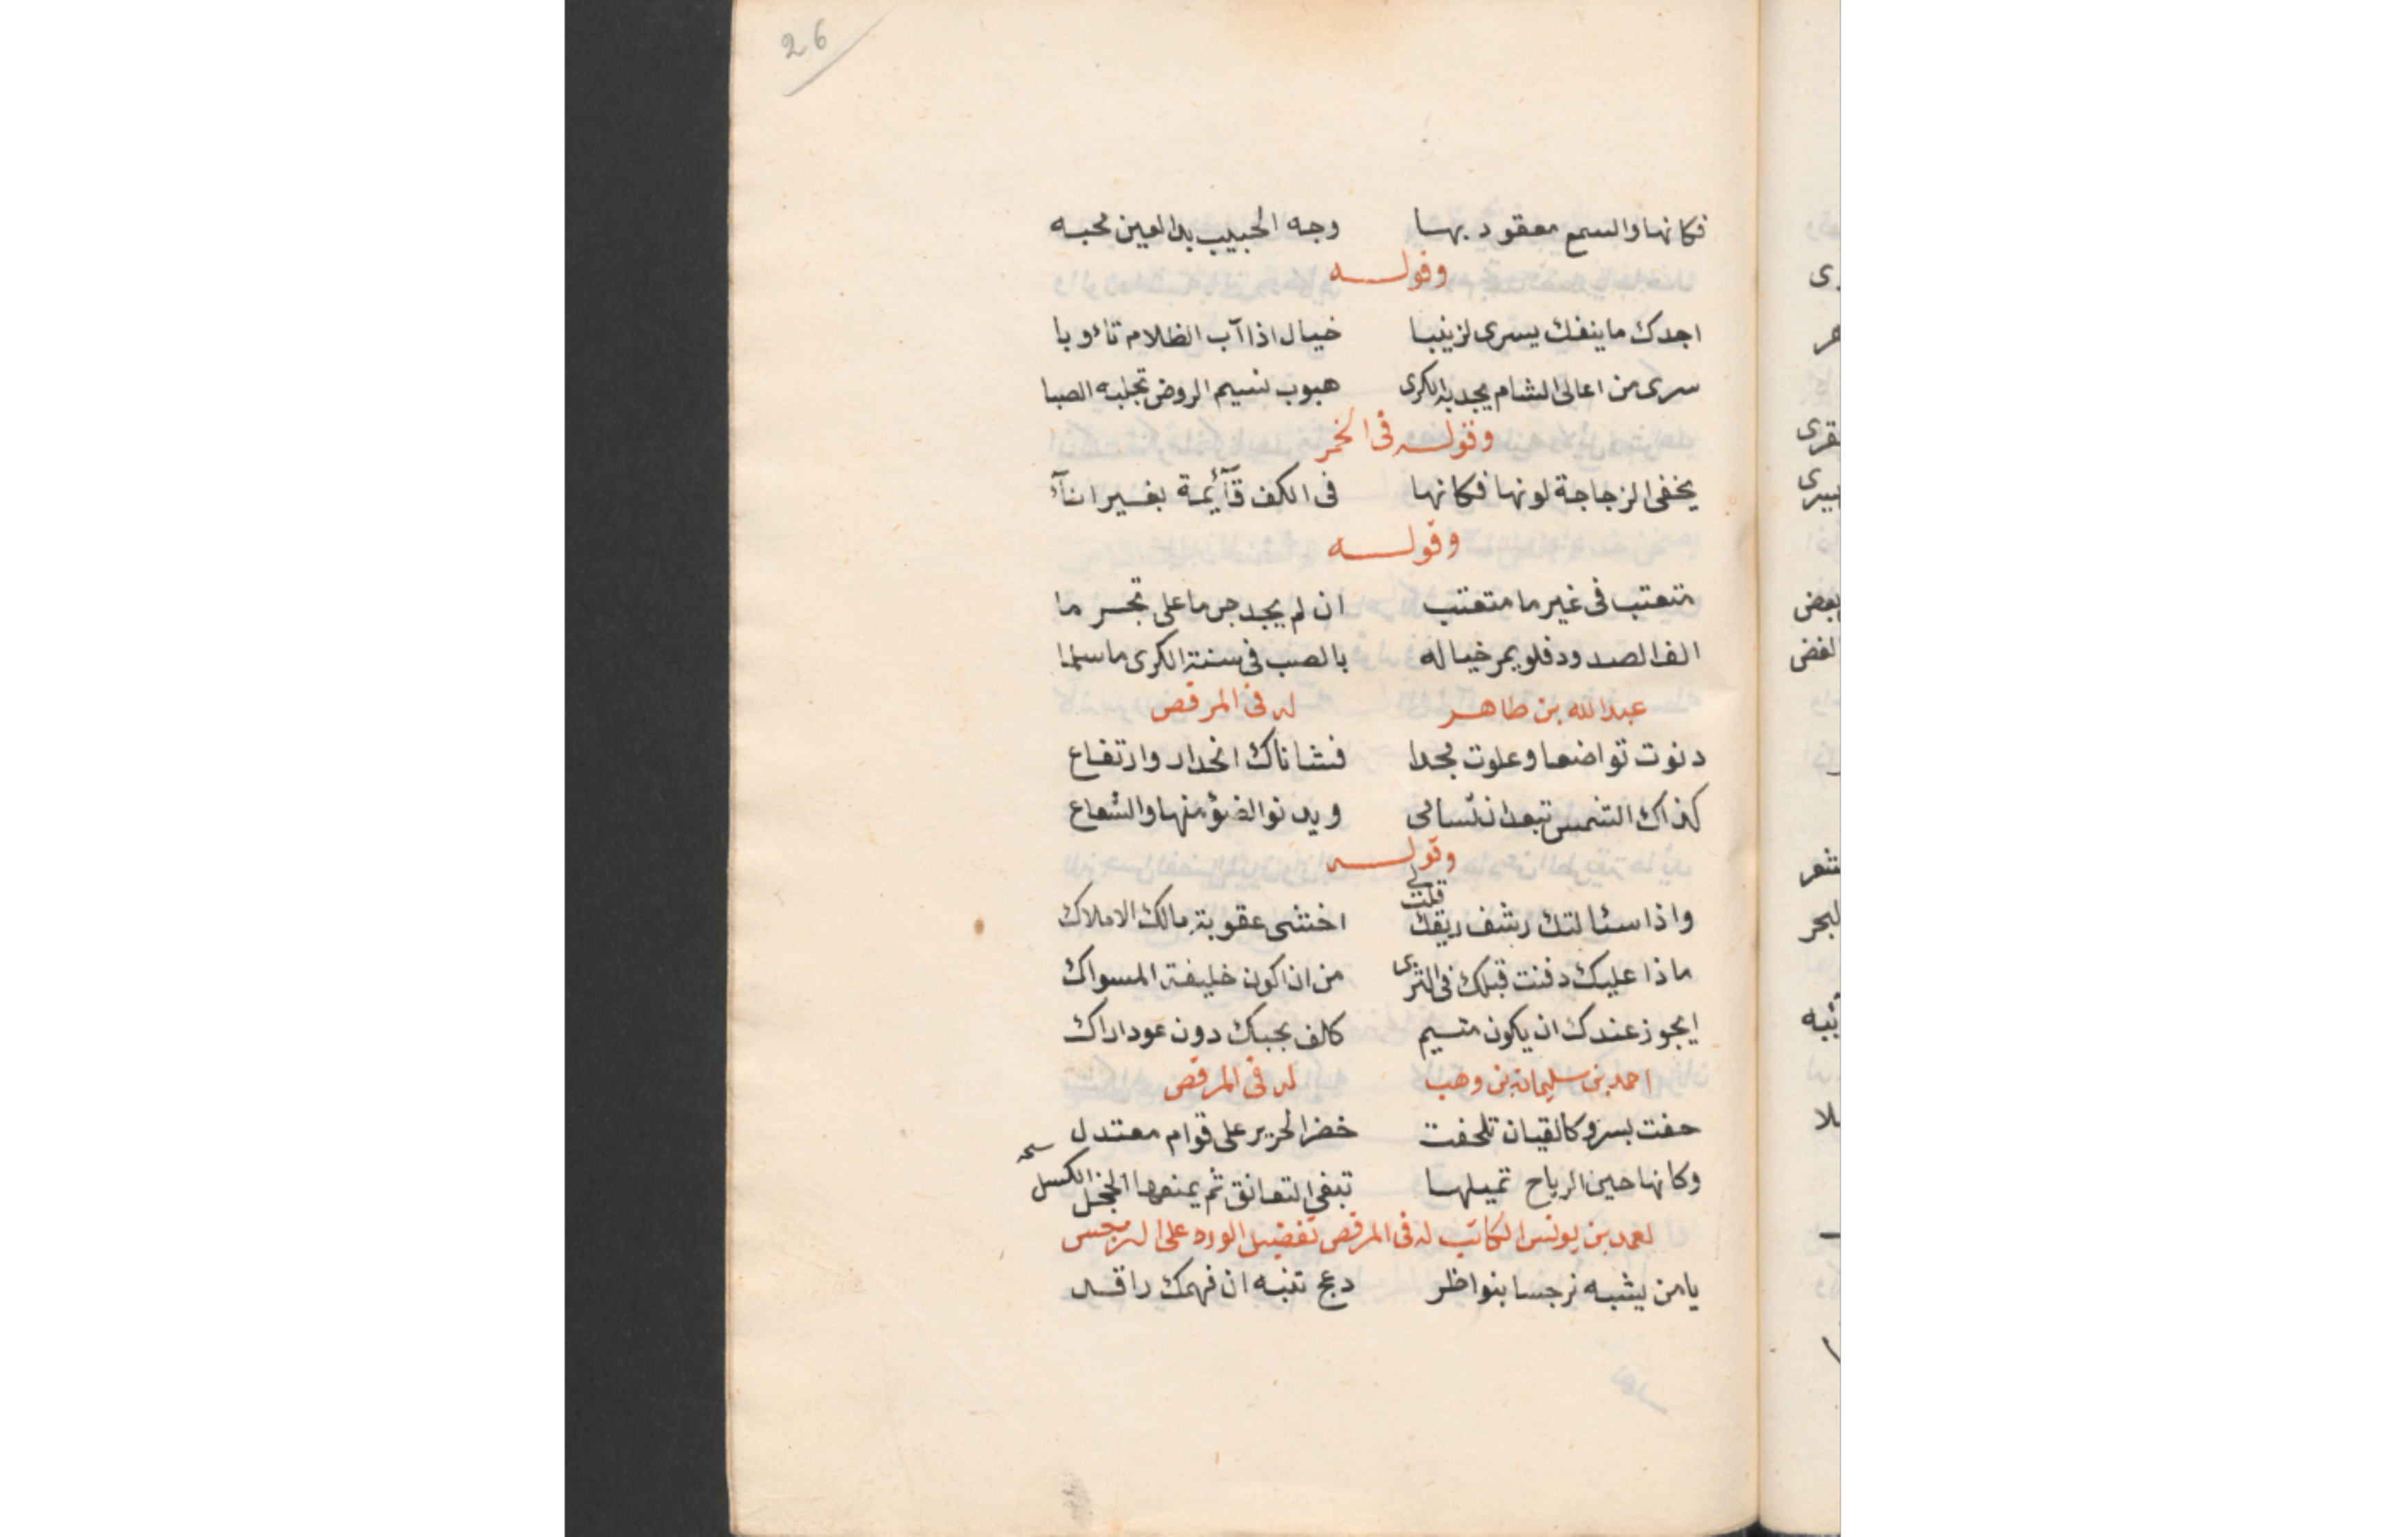 26
فكانها والسمع معقود بها وجه الحبيب بدا لعين محبه
وقوله
اجدك ما ينفك يسرى لزينبا خيال اذا آب الظلام تاءوبا
سرى من اعالى الشام يجديه الكرى هبوب نسيم الروض تجلبه الصبا
وقوله فى الخمر
يخفى الزجاجة لونها فكانها فى الكف قآئمة بغير انآء
وقوله
متعتب فى غير ما متعتب ان لم يجد جرما على تجرما
الف الصدود فلو يمر خياله بالصب فى سنة الكرى ما سلما
عبدالله بن طاهر له فى المرقص
دنوت تواضعا وعلوت مجدا فشاناك انحدار وارتفاع
كذاك الشمس تبعد ان تسامى ويدنو الضوء منها والشعاع
وقوله
واذا سئالتك رشف ريقك قلت لى اخشى عقوبة مالك الاملاك
ماذا عليك دفنت قبلك فى الثرى من ان اكون خليفة المسواك
ايجوز عندك ان يكون متيم كلف بحبك دون عود اراك
احمد بن سليمان بن وهب له فى المرقص
حفت بسرو كالقيان تلحفت خضر الحرير على قوام معتدل
وكانها حين الرياح تميلها تبغى التعانق ثم يمنعها الخجل الكسل
بن يونس الكاتب له فى المرقص تفضيل الورد على النرجس
يا من يشبه نرجسا بنواظر دعج تنبه ان فهمك راقد